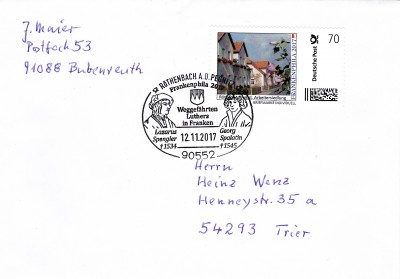 J. Maier
Postfach 53
91088 Bubenreuth
FRANKENPHILA 2017
Deutsche Post
70
RÖTHENBACH A.D. PEGNITZ
Frankenphila 2017
Weggefährten
Luthers
in Franken
Lazarus
Spengler
†1534
Georg
Spalatin
†1545
12.11.2017
90552
Herrn
Heinz Wenz
Henneystr. 35 a
54293 Trier